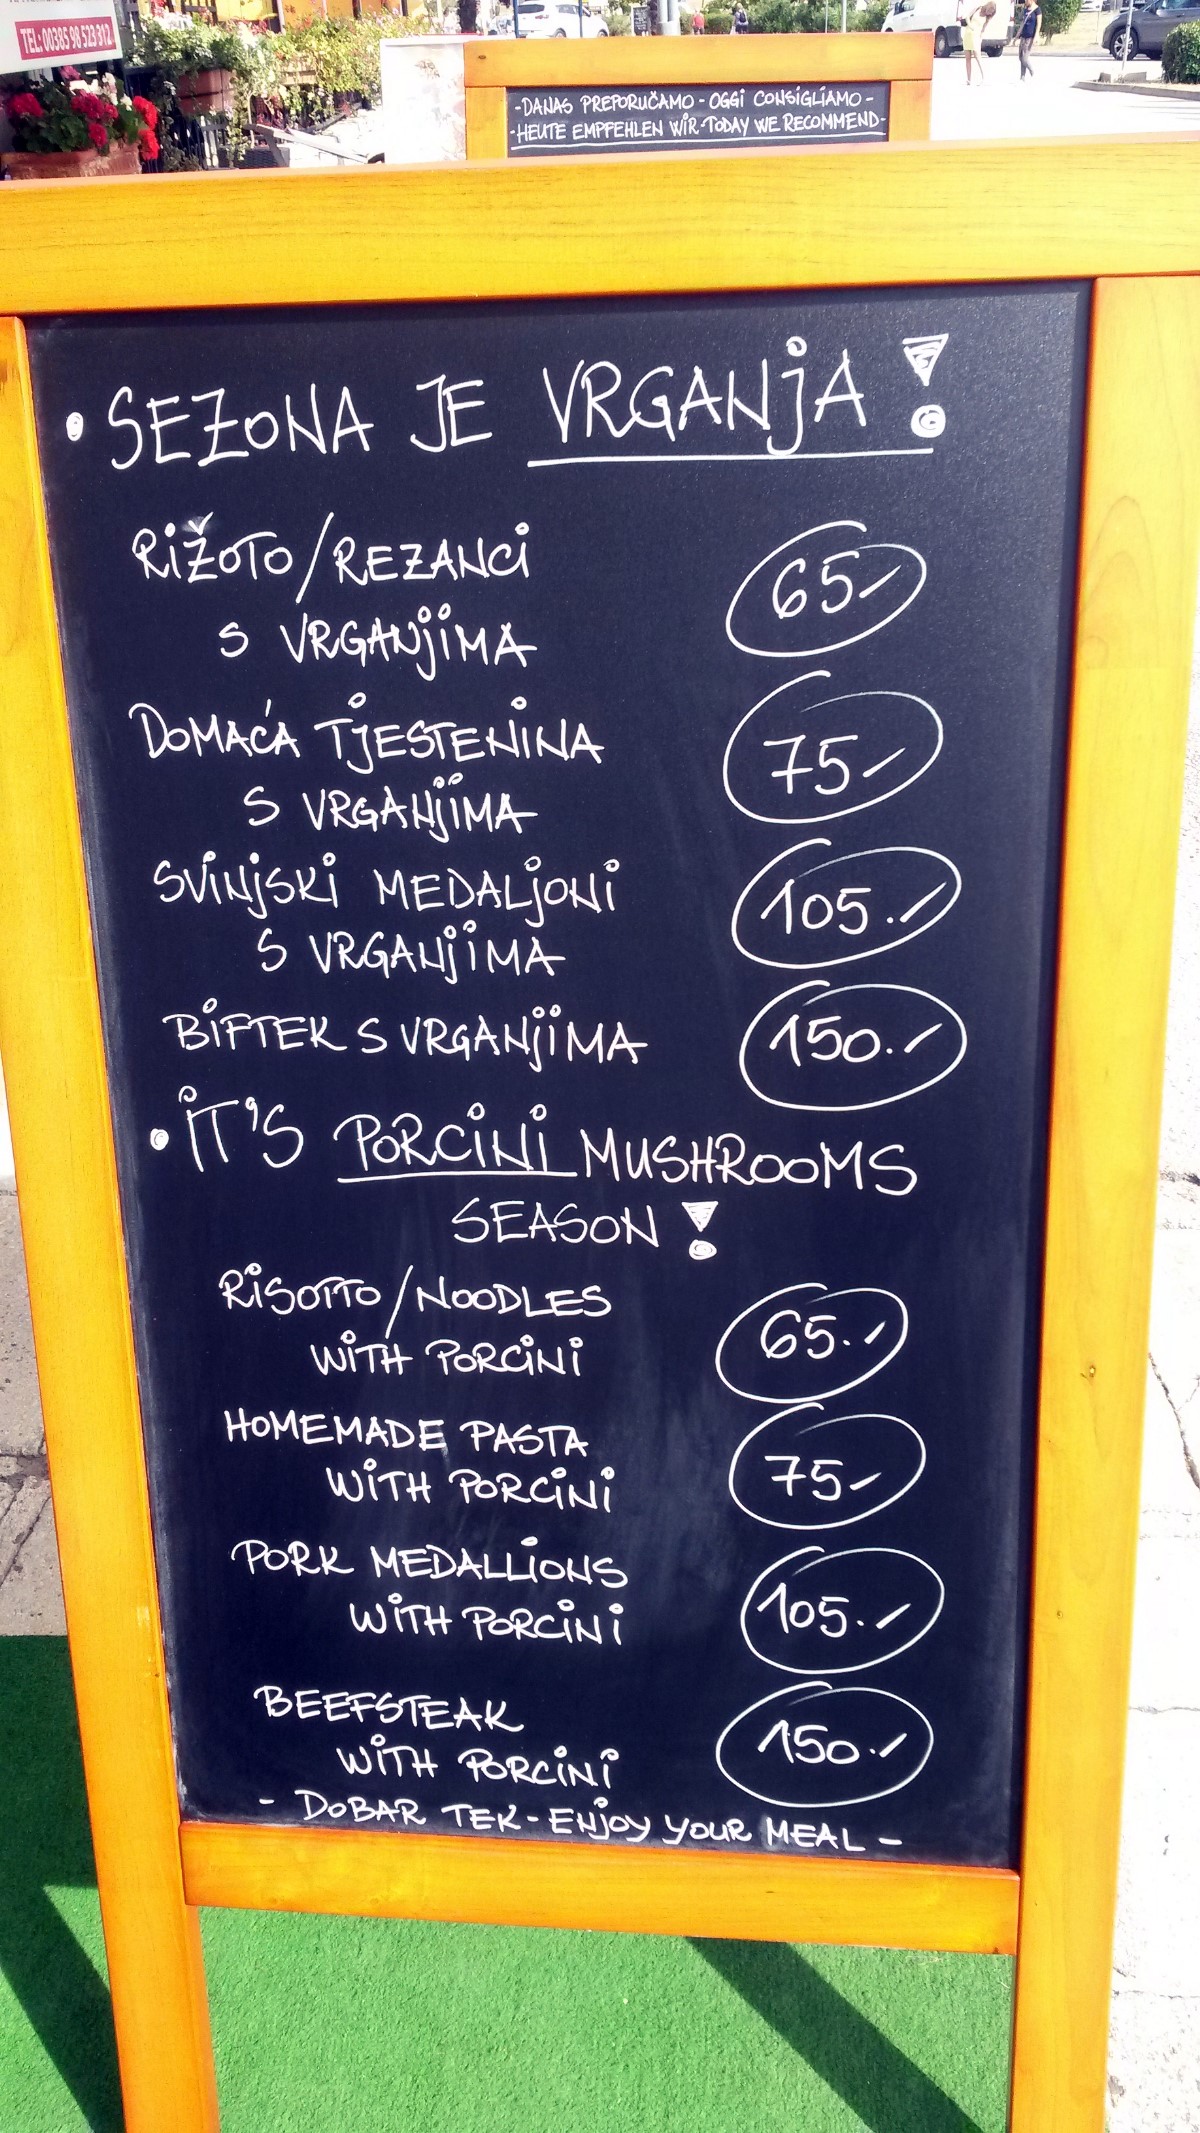 TEL: 00385 98 523 312
-DANAS PREPORUČAMO - OGGI CONSIGLIAMO-
-HEUTE EMPFEHLEN WIR-TODAY WE RECOMMEND-
• SEZONA JE VRGANJA!
RIŽOTO/REZANCI
S VRGANJIMA 65.-
DOMAĆA TJESTENINA
S VRGANJIMA 75.-
SVINJSKI MEDALJONI
S VRGANJIMA 105.-
BIFTEK S VRGANJIMA 150.-
• IT'S PORCINI MUSHROOMS
SEASON!
RISOTTO/NOODLES
WITH PORCINI 65.-
HOMEMADE PASTA
WITH PORCINI 75.-
PORK MEDALLIONS
WITH PORCINI 105.-
BEEFSTEAK
WITH PORCINI 150.-
- DOBAR TEK - ENJOY YOUR MEAL -